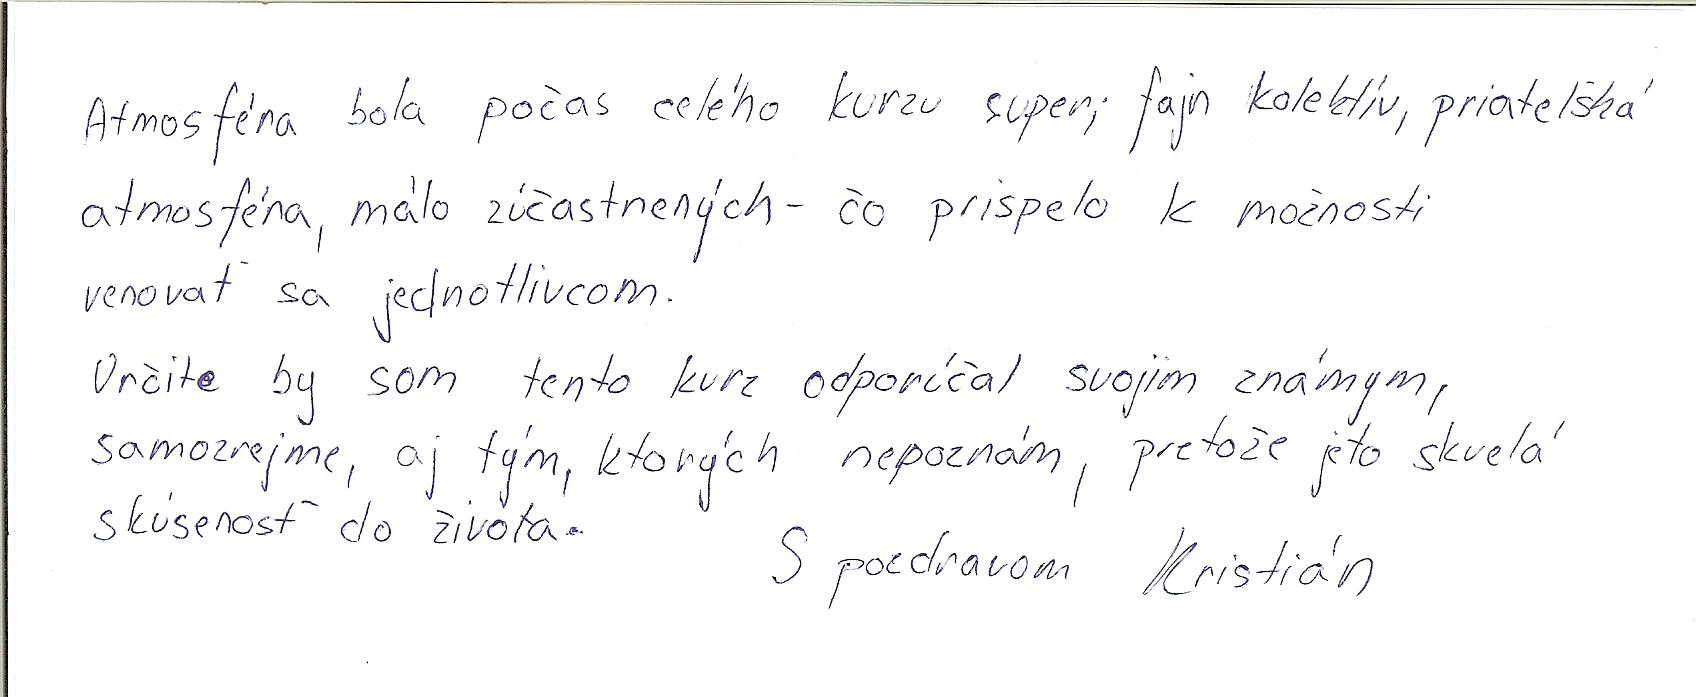 Atmosféra bola počas celého kurzu super; fajn kolektív, priatelská
atmosféra, málo zúčastnených - čo prispelo k možnosti
venovať sa jednotlivcom.
Určite by som tento kurz odporúčal svojim známym,
samozrejme, aj tým, ktorých nepoznám, pretože je to skvelá
skúsenosť do života.
S pozdravom Kristián